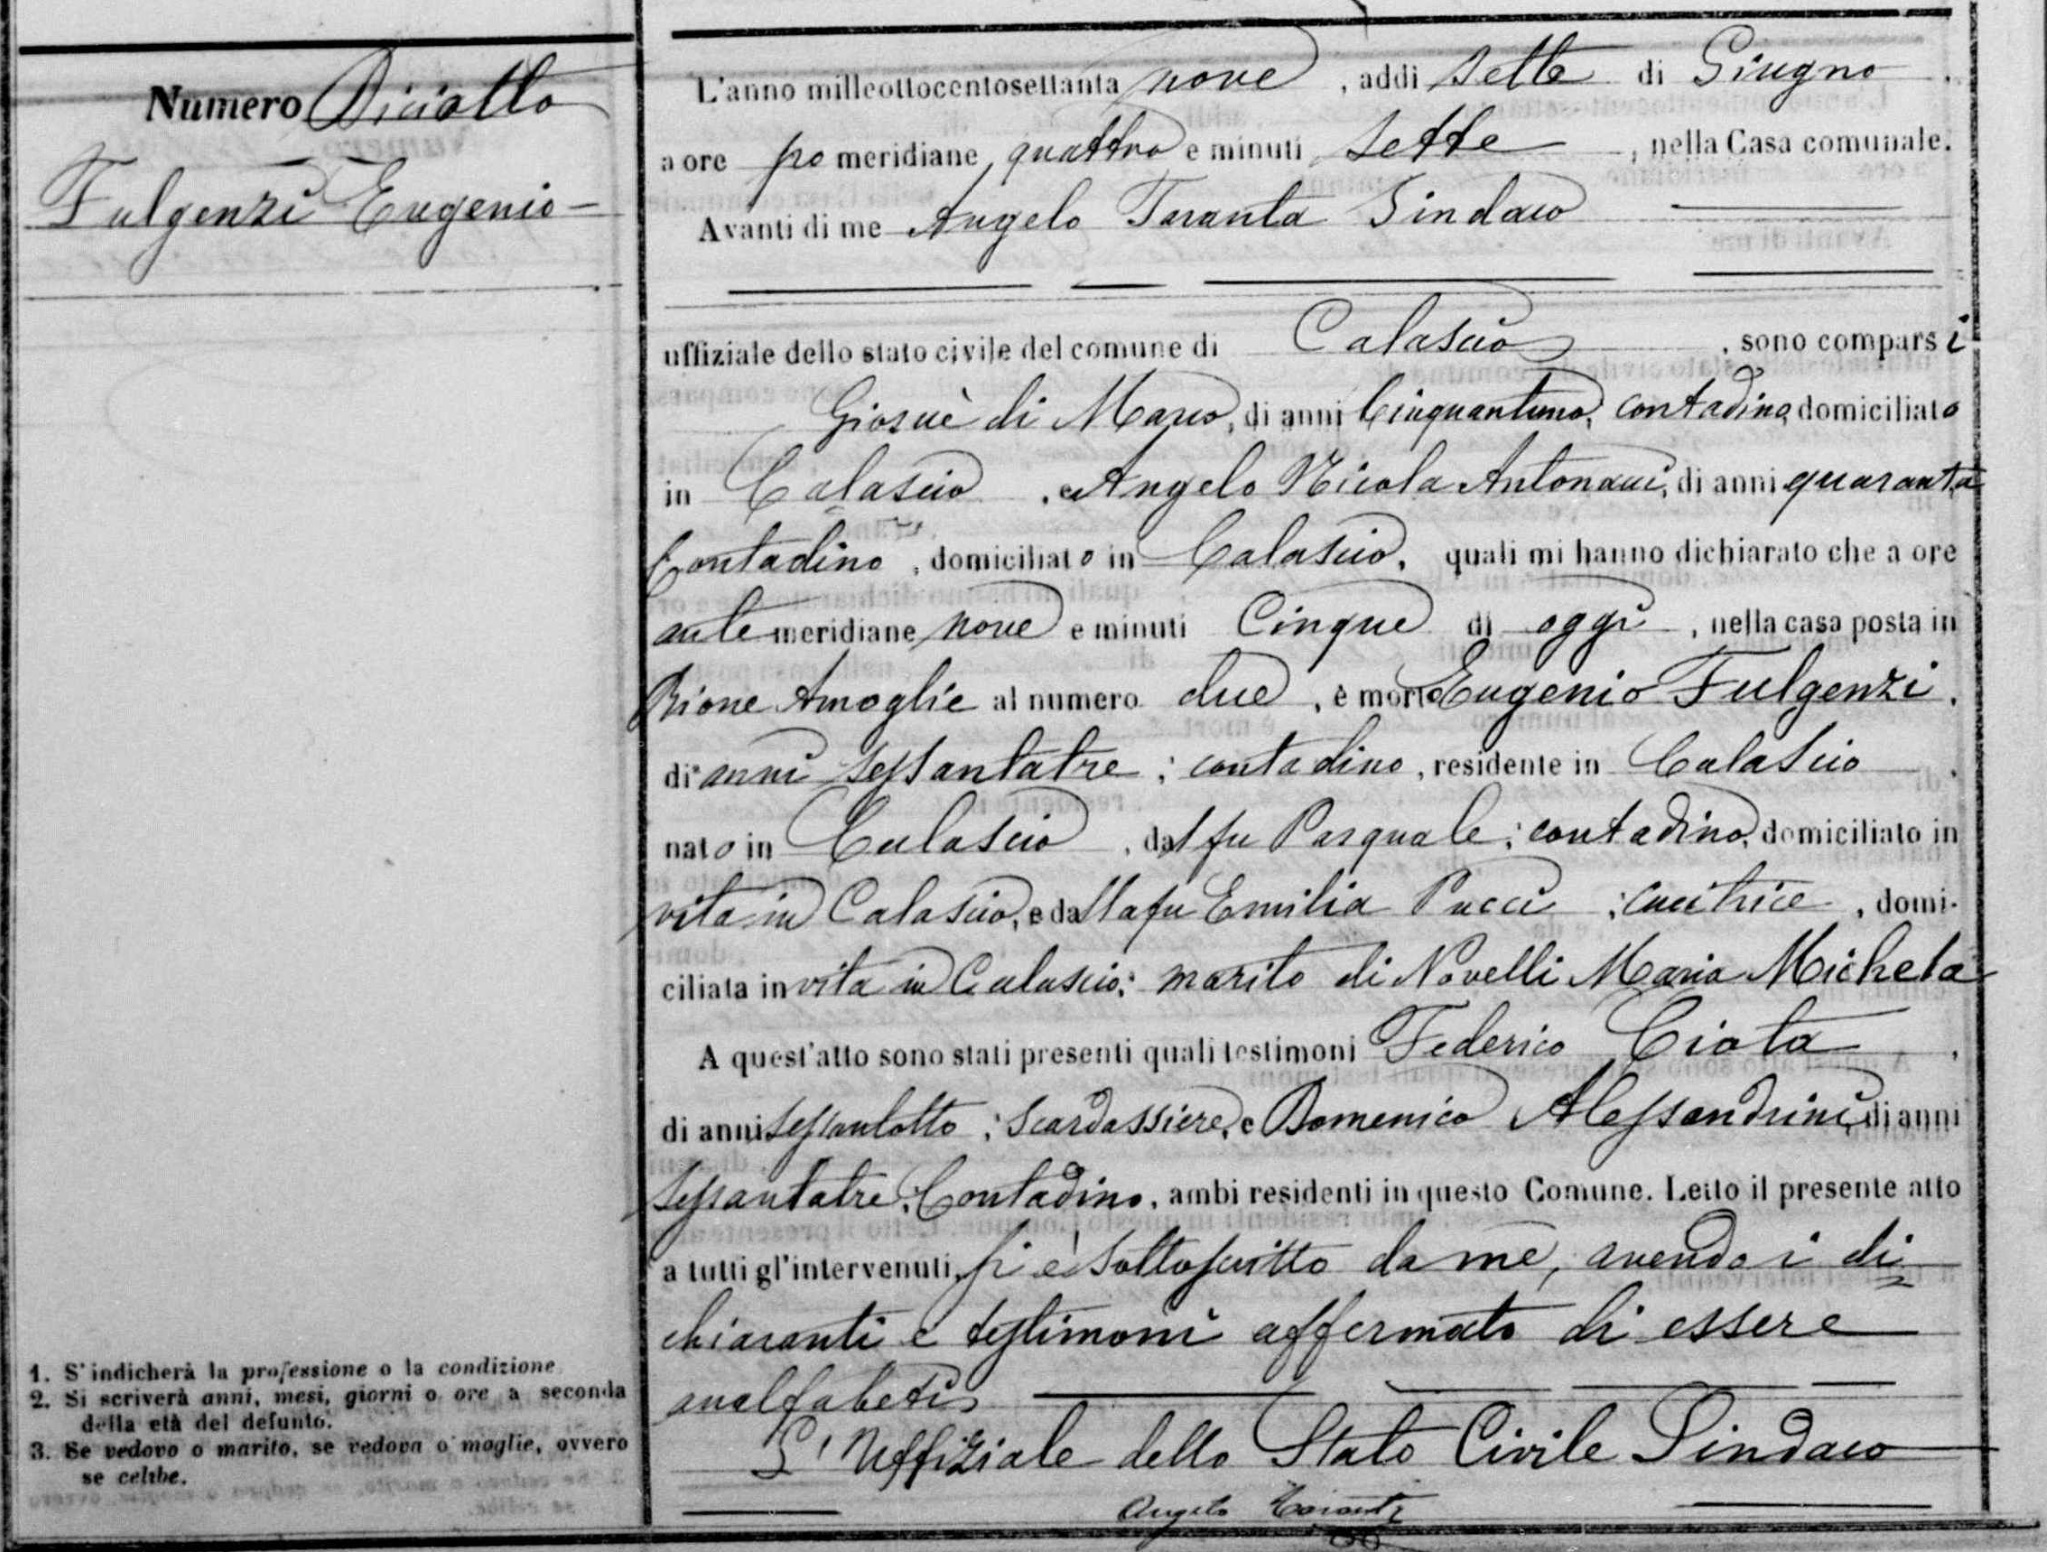 Numero Diciotto
Fulgenzi Eugenio
L'anno milleottocentosettanta nove, addì sette di Giugno.
a ore pomeridiane quattro e minuti sette, nella Casa comunale.
Avanti di me Angelo Taranta Sindaco
uffiziale dello stato civile del comune di Calascio, sono comparsi
Giosuè di Marco, di anni Cinquantuno, contadino, domiciliato
in Calascio, e Angelo Nicola Antonacci, di anni quaranta
Contadino, domiciliato in Calascio, quali mi hanno dichiarato che a ore
antemeridiane nove e minuti Cinque di oggi, nella casa posta in
Rione Amoglie al numero due, è morto Eugenio Fulgenzi.
di anni sessantatre; contadino, residente in Calascio.
nato in Calascio, dal fu Pasquale; contadino, domiciliato in
vita in Calascio, e dalla fu Emilia Pucci; cucitrice, domi-
ciliata in vita in Calascio; marito di Novelli Maria Michela
A quest'atto sono stati presenti quali testimoni Federico Ciota,
di anni sessantotto; Scardassiere, e Domenico Alessandrini, di anni
sessantatre; Contadino, ambi residenti in questo Comune. Letto il presente atto
a tutti gl'intervenuti, si è sottoscritto da me, avendo i di=
chiaranti e testimoni affermato di essere
analfabeti
L'Uffiziale dello Stato Civile Sindaco
Angelo Taranta
1. S'indicherà la professione o la condizione
2. Si scriverà anni, mesi, giorni o ore a seconda
della età del defunto.
3. Se vedovo o marito, se vedova o moglie, ovvero
se celibe.